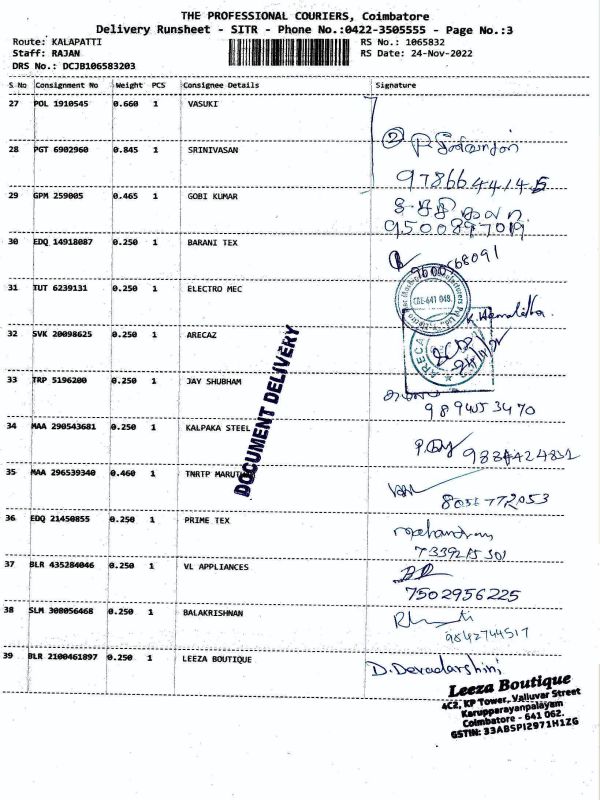 THE PROFESSIONAL COURIERS, Coimbatore
Delivery Runsheet - SITR - Phone No.:0422-3505555 - Page No.:3
Route: KALAPATTI RS No.: 1065832
Staff: RAJAN RS Date: 24-Nov-2022
DRS No.: DCJB106583203
S No Consignment No Weight PCS Consignee Details Signature
27 POL 1910545 0.660 1 VASUKI
28 PGT 6902960 0.845 1 SRINIVASAN
9786644145
29 GPM 259005 0.465 1 GOBI KUMAR
9500897019
30 EDQ 14918087 0.250 1 BARANI TEX
9600568091
31 TUT 6239131 0.250 1 ELECTRO MEC
CBE-641 048.
K. Hemalatha.
32 SVK 20098625 0.250 1 ARECAZ
ARECA
33 TRP 5196200 0.250 1 JAY SHUBHAM
9894553470
34 MAA 290543681 0.250 1 KALPAKA STEEL
9884424832
35 MAA 296539340 0.460 1 TNRTP MARUTH
8056772053
36 EDQ 21450855 0.250 1 PRIME TEX
7339215301
37 BLR 435284046 0.250 1 VL APPLIANCES
7502956225
38 SLM 308056468 0.250 1 BALAKRISHNAN
9842744517
39 BLR 2100461897 0.250 1 LEEZA BOUTIQUE
D. Devadarshini
DOCUMENT DELIVERY
Leeza Boutique
4C2, KP Tower, Valluvar Street
Karupparayanpalayam
Coimbatore - 641 062.
GSTIN: 33ABSPI2971H1ZG